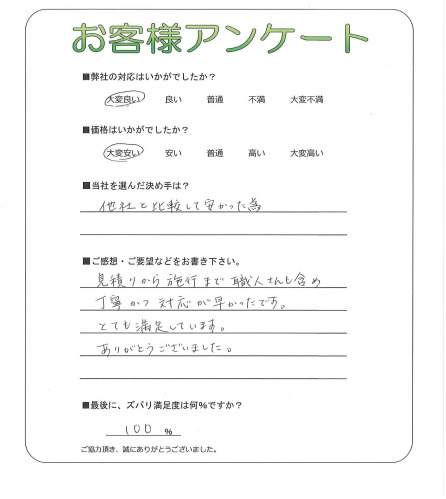 お客様アンケート
■弊社の対応はいかがでしたか？
大変良い 良い 普通 不満 大変不満
■価格はいかがでしたか？
大変安い 安い 普通 高い 大変高い
■当社を選んだ決め手は？
他社と比較して安かった為
■ご感想・ご要望などをお書き下さい。
見積りから施行まで職人さんも含め
丁寧かつ対応が早かったです。
とても満足しています。
ありがとうございました。
■最後に、ズバリ満足度は何%ですか？
100 %
ご協力頂き、誠にありがとうございました。